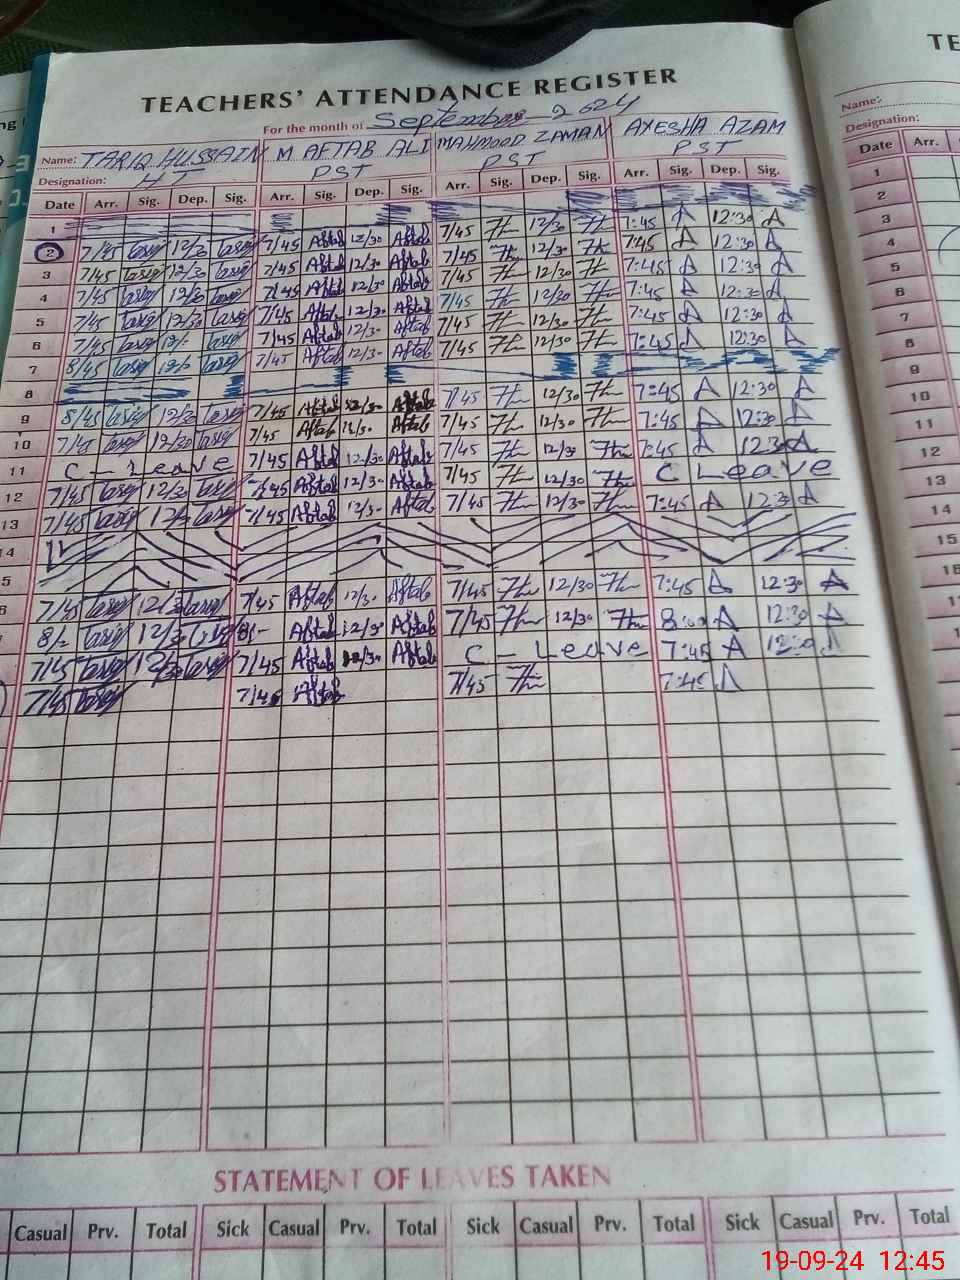 TEACHERS' ATTENDANCE REGISTER
For the month of September 2024
Name: TARIQ HUSSAIN M AFTAB ALI MAHMOOD ZAMAN AYESHA AZAM
Designation: HT PST PST PST
Date Arr. Sig. Dep. Sig. Arr. Sig. Dep. Sig. Arr. Sig. Dep. Sig. Arr. Sig. Dep. Sig.
1
2 7/45 Tariq 12/30 Tariq 7/45 Aftab 12/30 Aftab 7/45 12/30 7:45 A 12:30 A
3 7/45 Tariq 12/30 Tariq 7/45 Aftab 12/30 Aftab 7/45 12/30 7:45 A 12:30 A
4 7/45 Tariq 12/30 Tariq 7/45 Aftab 12/30 Aftab 7/45 12/30 7:45 A 12:30 A
5 7/45 Tariq 12/30 Tariq 7/45 Aftab 12/30 Aftab 7/45 12/30 7:45 A 12:30 A
6 7/45 Tariq 12/ Tariq 7/45 Aftab 12/30 Aftab 7/45 12/30 7:45 A 12:30 A
7 8/45 Tariq 12/ Tariq 7/45 Aftab 12/30 Aftab 7/45 12/30 7:45 A 12:30 A
8
9 8/45 Tariq 12/30 Tariq 7/45 Aftab 12/30 Aftab 7/45 12/30 7:45 A 12:30 A
10 7/45 Tariq 12/30 Tariq 7/45 Aftab 12/30 Aftab 7/45 12/30 7:45 A 12:30 A
11 C - Leave 7/45 Aftab 12/30 Aftab 7/45 12/30 7:45 A 12:30 A
12 7/45 Tariq 12/30 Tariq 7/45 Aftab 12/30 Aftab 7/45 12/30 C Leave
13 7/45 Tariq 12/30 Tariq 7/45 Aftab 12/30 Aftab 7/45 12/30 7:45 A 12:30 A
14
5
6 7/45 Tariq 12/30 Tariq 7/45 Aftab 12/30 Aftab 7/45 12/30 7:45 A 12:30 A
8/- Tariq 12/30 Tariq 8/- Aftab 12/30 Aftab 7/45 12/30 8:00 A 12:30 A
7/45 Tariq 12/30 Tariq 7/45 Aftab 12/30 Aftab C - Leave 7:45 A 12:30 A
7/45 Tariq 7/45 Aftab 7/45 7:45 A
STATEMENT OF LEAVES TAKEN
Casual Prv. Total Sick Casual Prv. Total Sick Casual Prv. Total Sick Casual Prv. Total
TE
Name:
Designation:
Date Arr.
1
2
3
4
5
6
7
8
9
10
11
12
13
14
15
16
19-09-24 12:45